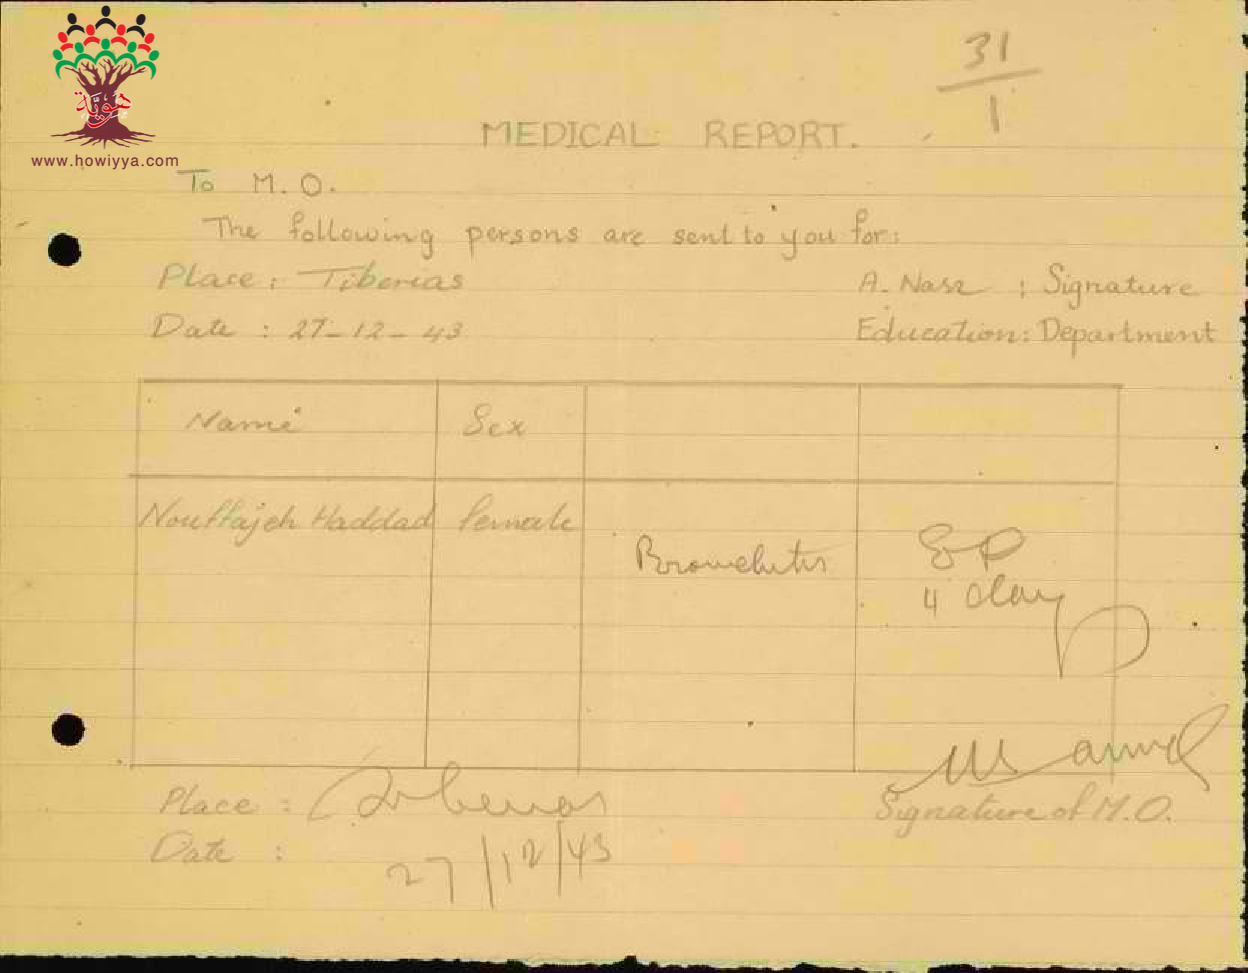 31
1
هوية
www.howiyya.com
MEDICAL REPORT.
To M. O.
The following persons are sent to you for:
Place : Tiberias
A. Nasr : Signature
Date : 27-12-43
Education: Department
Name Sex
Nouffajeh Haddad female
4 day
Place : Tiberias
Signature of M.O.
Date : 27/12/43